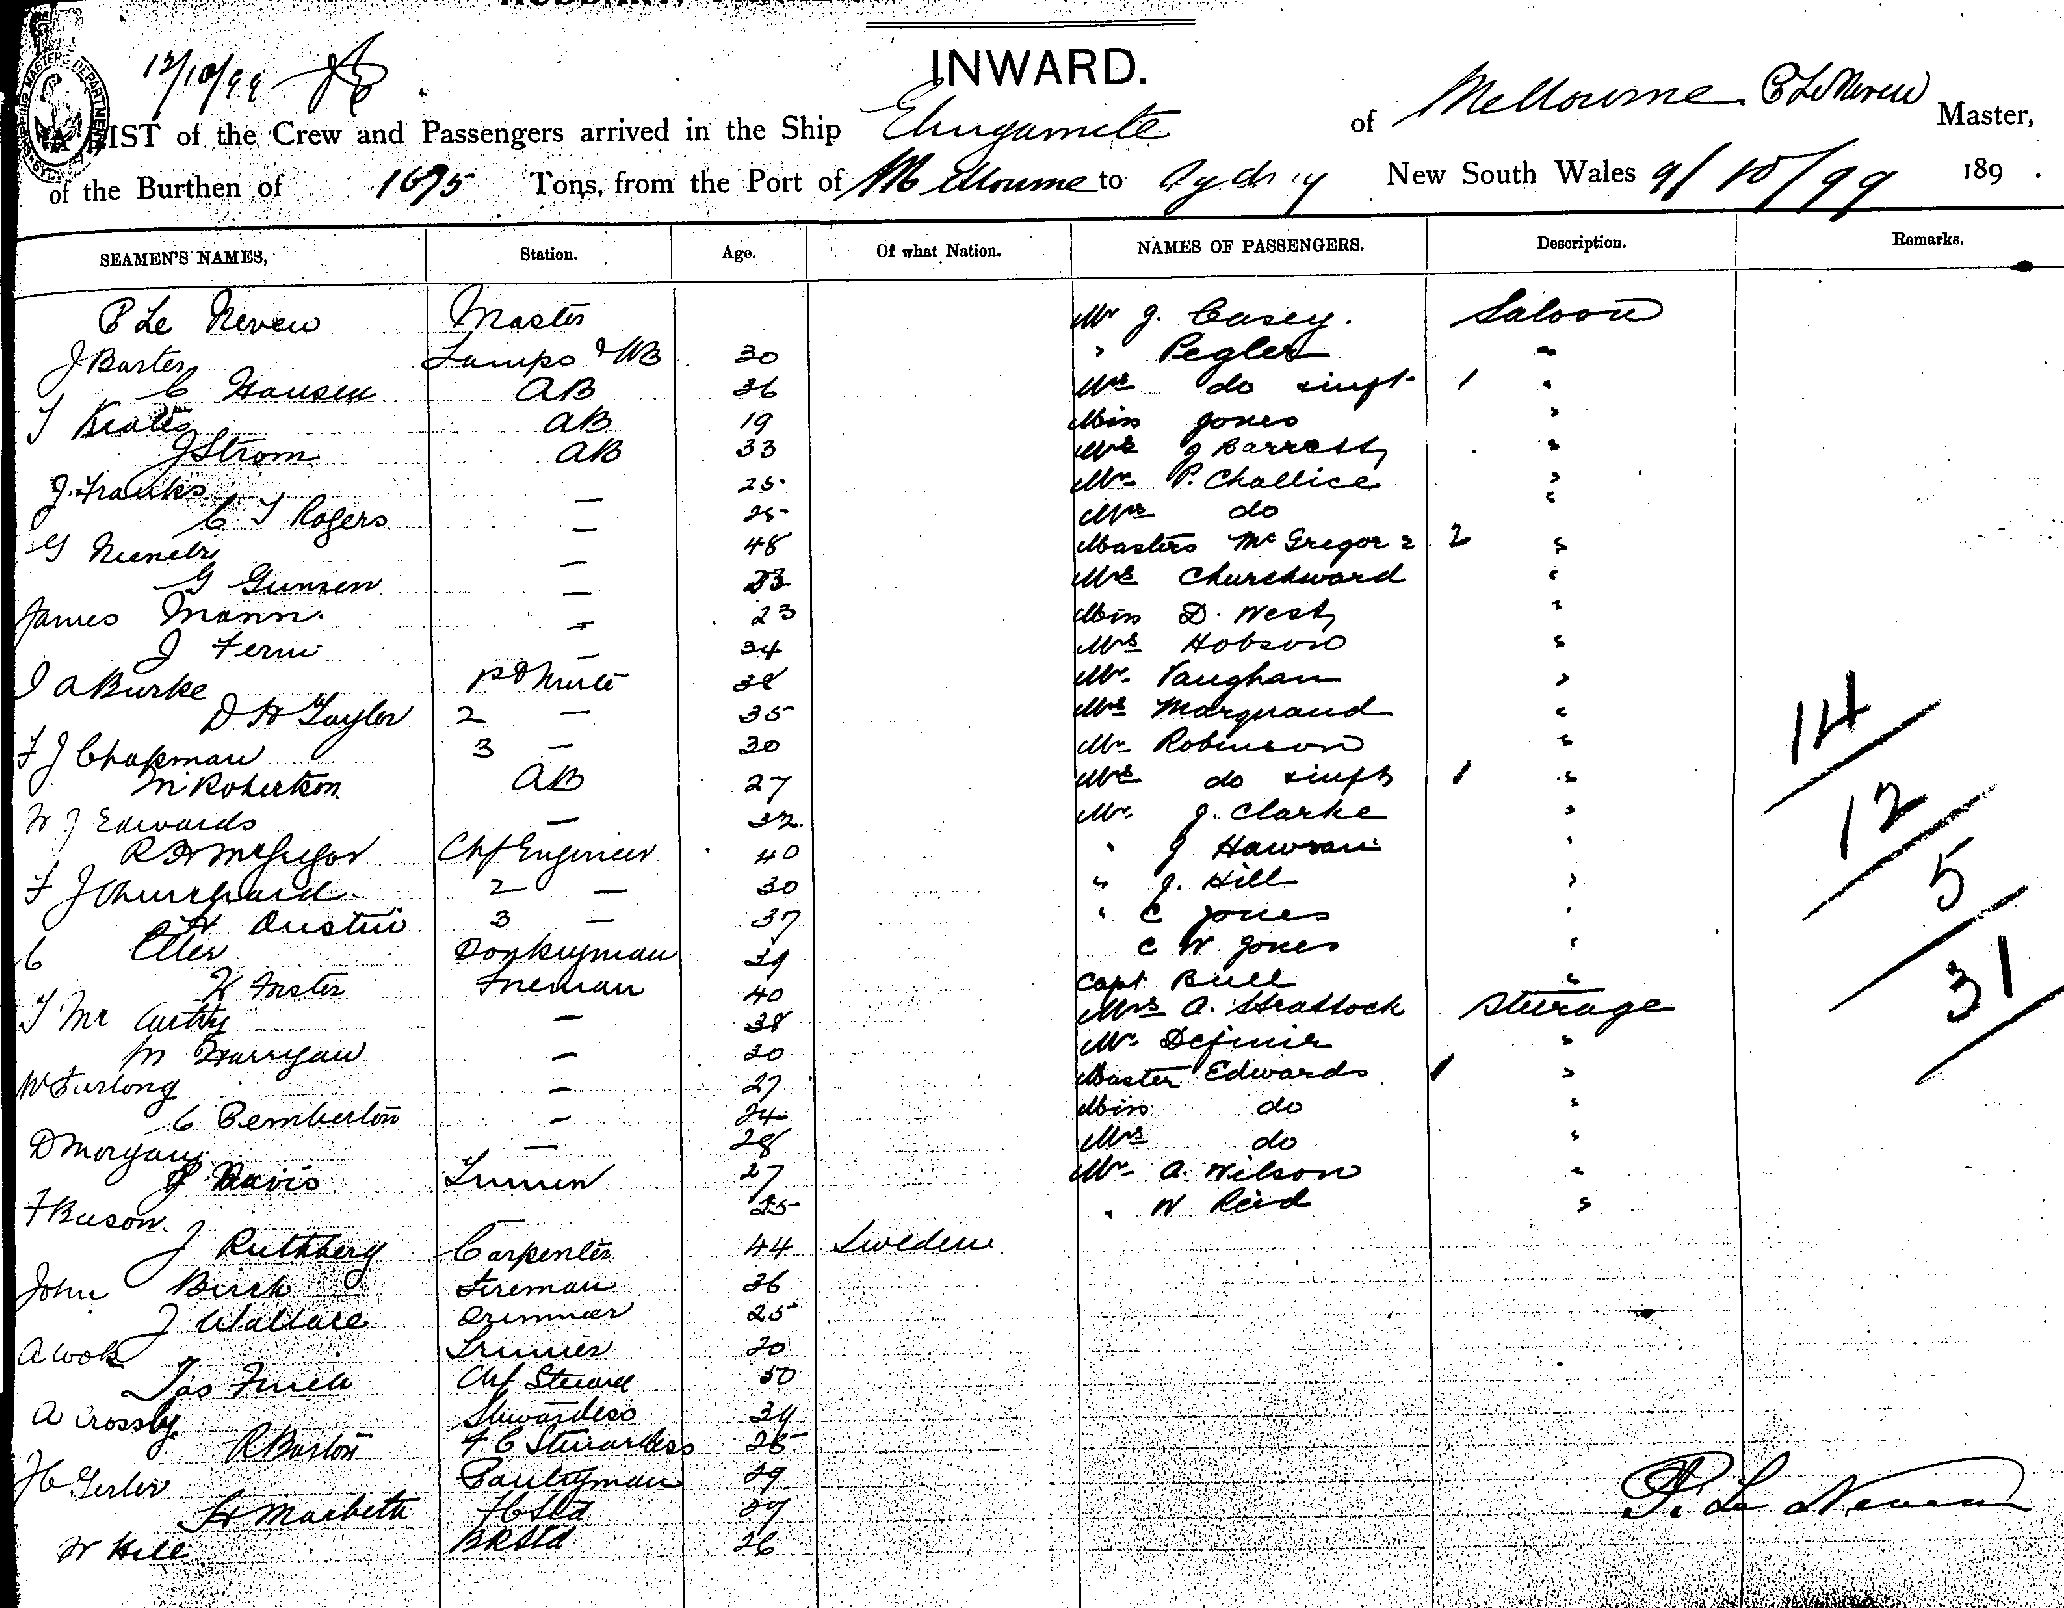 12/10/99
INWARD.
A LIST of the Crew and Passengers arrived in the Ship Elingamite of Melbourne. P Le Neveu Master,
of the Burthen of 1675 Tons, from the Port of Melbourne to Sydney New South Wales 9/10/99 189 .
SEAMEN'S NAMES, Station. Age. Of what Nation. NAMES OF PASSENGERS. Description. Remarks.
P Le Neveu Master Mr J. Casey. Saloon
J Barter Lamps & AB 30 " Pegler "
C Hansen AB 36 Mrs do 1 "
T Keates AB 19 Miss Jones "
J Strom AB 33 Mrs J Barrett "
J. Franks — 25 Mr P. Challice "
C T Rogers — 25 Mrs do "
G — 48 Masters McGregor 2 2 "
G Gunsen — 33 Mrs Churchward "
James Mann — 23 Miss D. West "
J Ferm — 34 Mrs Hobson "
J A Burke 1st Mate 38 Mr. Vaughan "
D H Taylor 2 — 35 Mrs Marquand "
F J Chapman 3 — 30 Mr Robinson "
M Robertson AB 27 Mrs do 1 "
W J Edwards — 32 Mr. J. Clarke "
R H McGregor Chf Engineer 40 " J "
F J Churchward 2 — 30 " J. Hill "
H Austin 3 — 37 " C Jones "
C Donkeyman 39 C W Jones "
Fireman 40 Capt Bull "
T McCarthy — 38 Mrs A. Strattock Steerage
M — 30 Mr "
W Furlong — 27 Master Edwards 1 "
C Pemberton — 24 Miss do "
D Morgan — 28 Mrs do "
J Davis Trimmer 27 Mr A. Wilson "
F Beeson. 25 " W Reid "
J Ruthberg Carpenter 44 Sweden
John Birch Fireman 36
J Wallace Trimmer 25
A Wok Trimmer 20
Jas Chf Steward 50
A Crossby Stewardess 34
R Barton F C Stewardess
Pantryman 29
H Macbeth F C Std
W Hill BR Std 26
14
12
5
31
P. Le Neveu